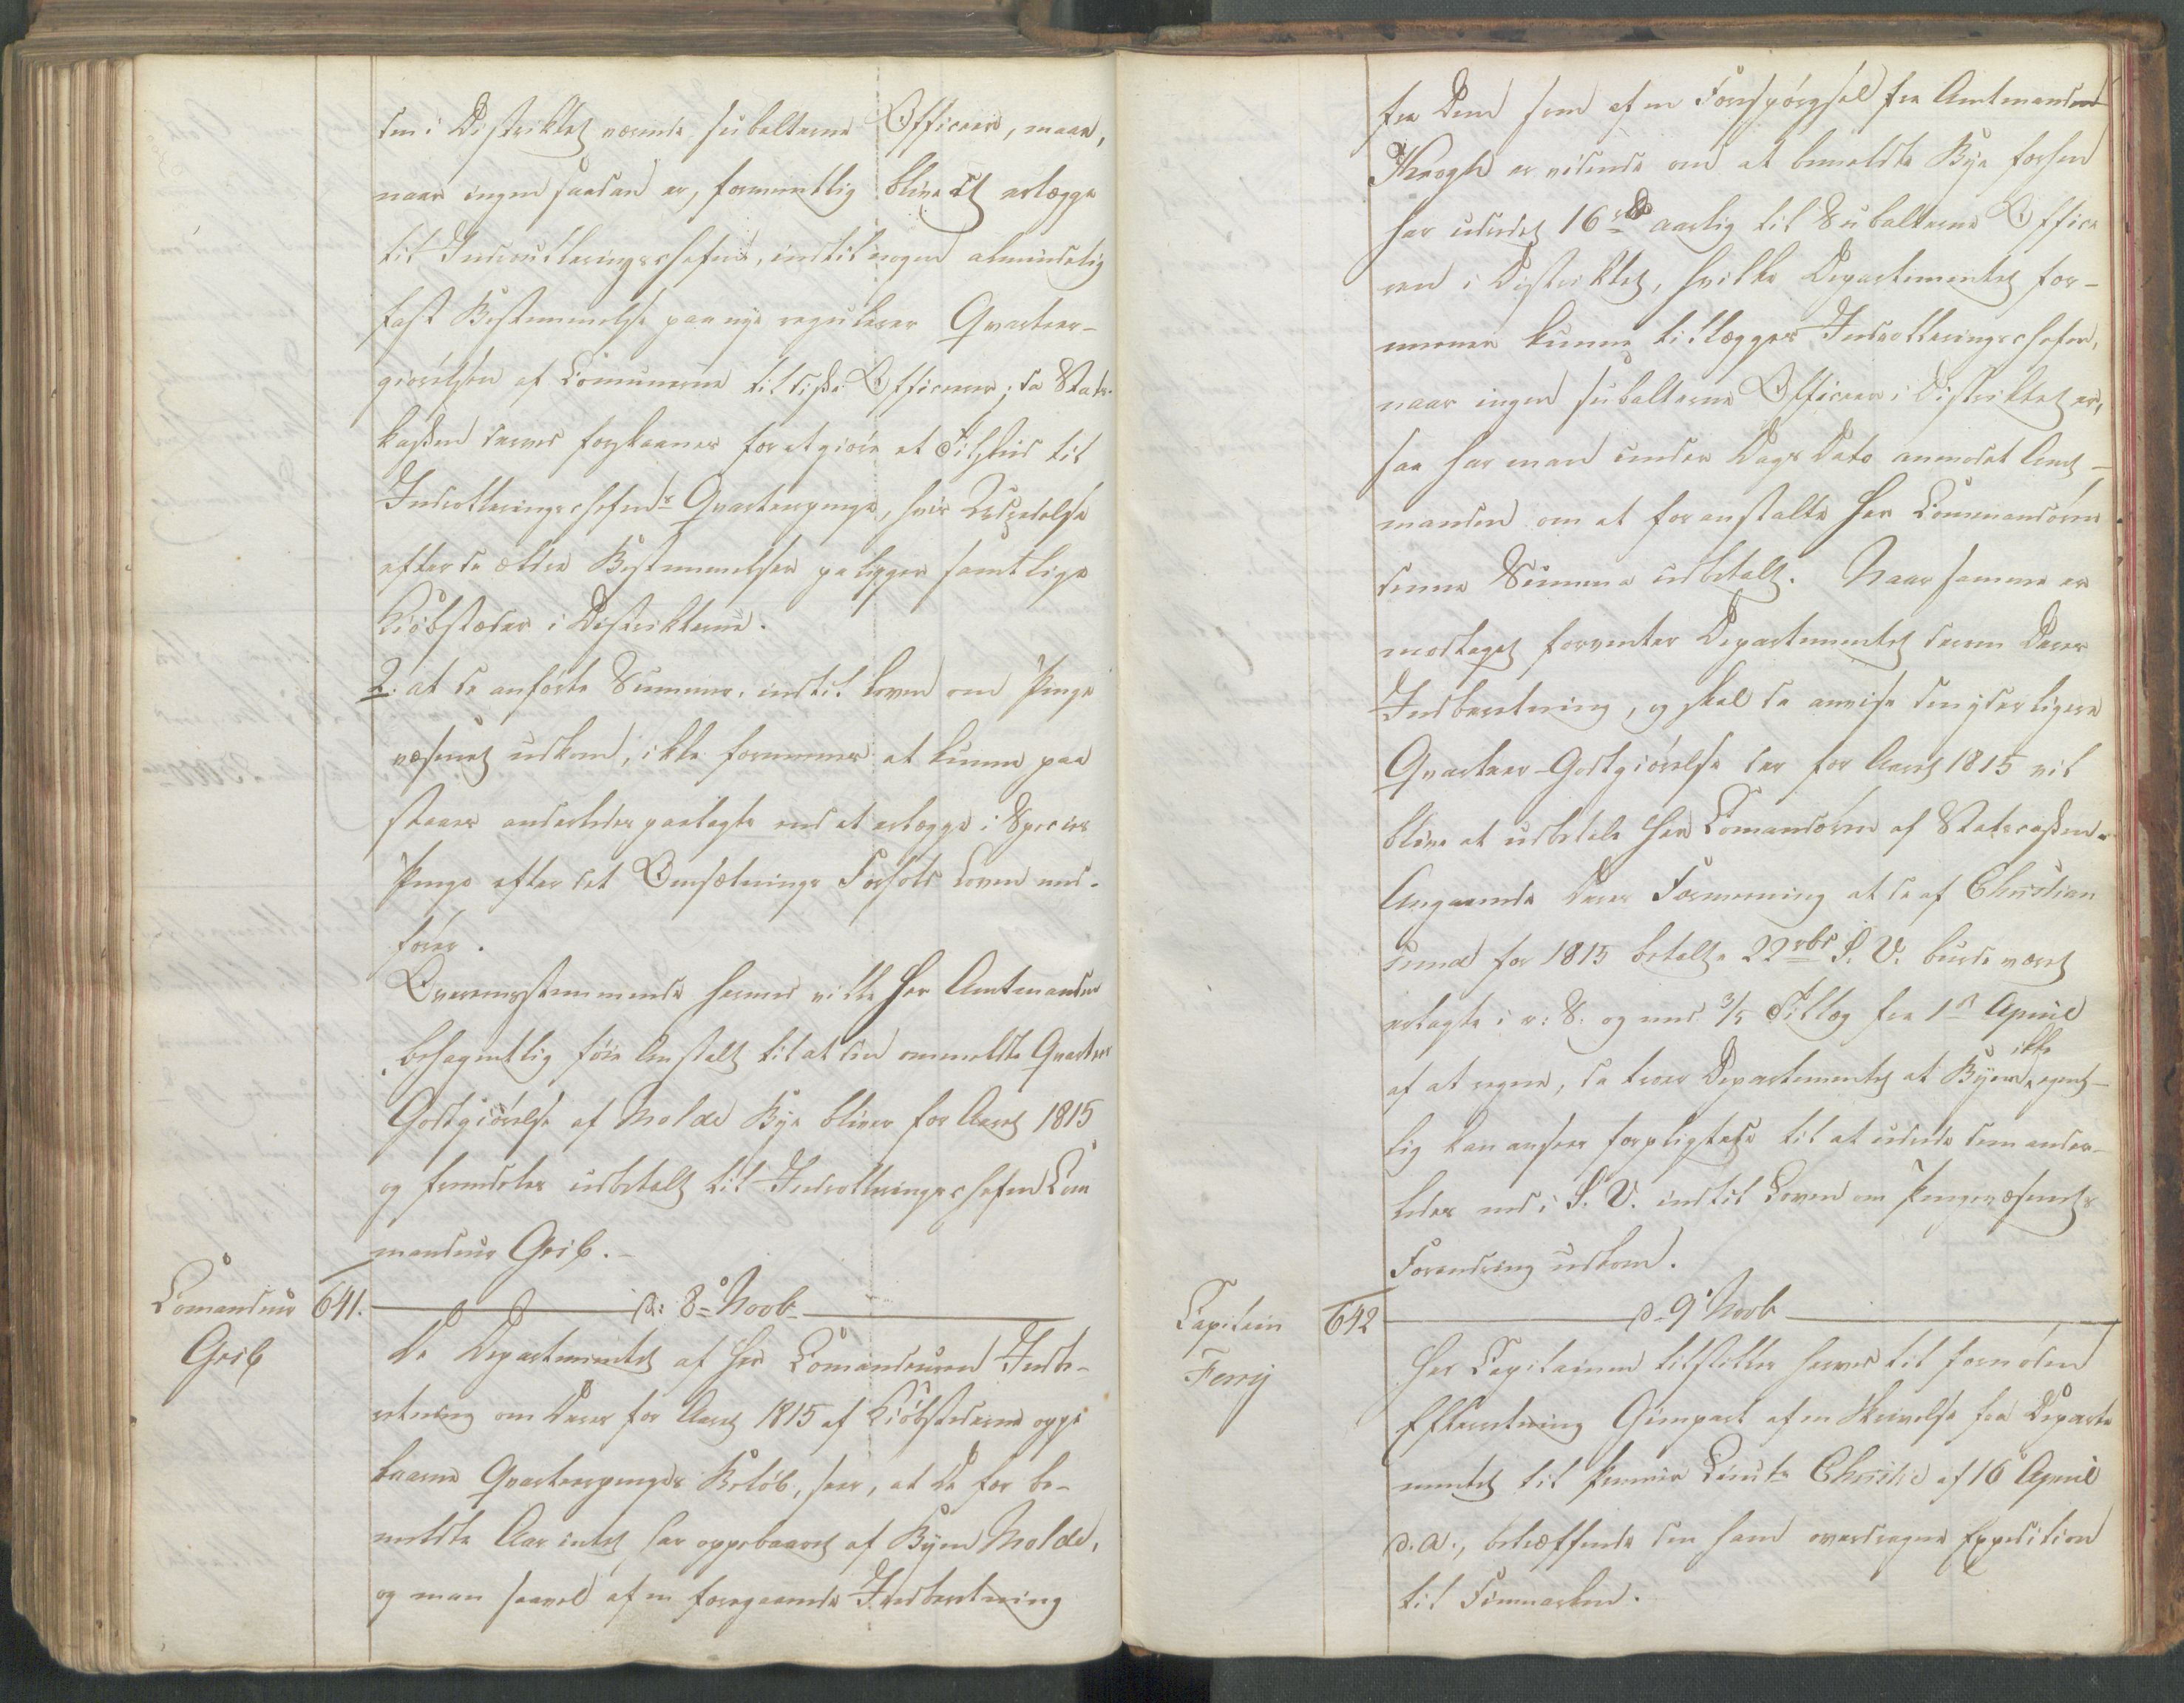 den i Distriktet værende subalterne Officeer, maae,
naar ingen saadan er, formeentlig blive at erlægge
til Indroulleringschefen, indtil nogen almindelig
fast Bestemmelse paa nye regulerer Qvarteer-
giørelsen af Communerne til disse Officerer; da Stats-
kassen derved forskaanes for at giøre et Tilskud til
Indrolleringschefens Qvarteerpenge, hvis Udredelse
efter de ældre Bestemmelser paaligger samtlige
Kiøbstæder i Distrikterne.
2. at de anførte Summer, indtil Loven om Penge
væsenet udkom, ikke formenes at kunne paa
staaes anderledes paalagte end at erlægge i Species
Penge efter det Omsætnings Forhold Loven med-
fører.
Overeensstemmende hermed ville Herr Amtmanden
behagentlig føie Anstalt til at den ommeldte Qvarteer
Godtgiørelse af Molde Bye bliver for Aaret 1815
og fremdeles udbetalt til Indrolleringschefen Com
mandeur Grib.-
Comandeur 641. d: 8de Novb.
Grib
Da Departementet af Her Comandeurens Indbe-
retning om Deres for Aaret 1815 af Kiøbstæderne oppe
baarne Qvarteerpenges Beløb, seer, at De for be-
meldte Aar intet har oppebaaret af Byen Molde,
og man saavel af en foregaaende Indberetning
fra Dem som af en Forespørgsel fra Amtmanden
Krogh er vidende om at bemeldte Bye forhen
har udredet 16 rd aarlig til Subalterne Office
ren i Distriktet, hvilke Departementet for-
meener kunne tillægges Indrolleringschefen,
naar ingen subalterne Officeer i Distriktet er,
saa har man under Dags Dato anmodet Amt-
manden om at foranstalte Her Commandøren
denne Summa udbetalt. Naar samme er
modtaget forventer Departementet derom Deres
Indberetning, og skal da anvise den yderligere
Qvarteer-Godtgiørelse der for Aaret 1815 vil
blive at udbetale Her Comandøren af Statscassen.
Angaaende Deres Formening at de af Christian
sund for 1815 betalte 22 rbd S. V. burde været
erlagte i r: S. og med 3/5 Tillæg fra 1ste April
af at regne, da troer Departementet at Byen ikke egent-
lig kan ansees forpligtede til at udrede dem ander-
ledes end i S. V. indtil Loven om Pengevæsenets
Forandring udkom.
Capitain 642 d. 9de Novb
Ferry
Her Capitainen tilstilles herved til fornøden
Efterretning Gienpart af en Skrivelse fra Departe
mentet til Premier Lieut Christie af 16de April
d. A., betræffende den ham overdragne Expedition
til Finmarken.